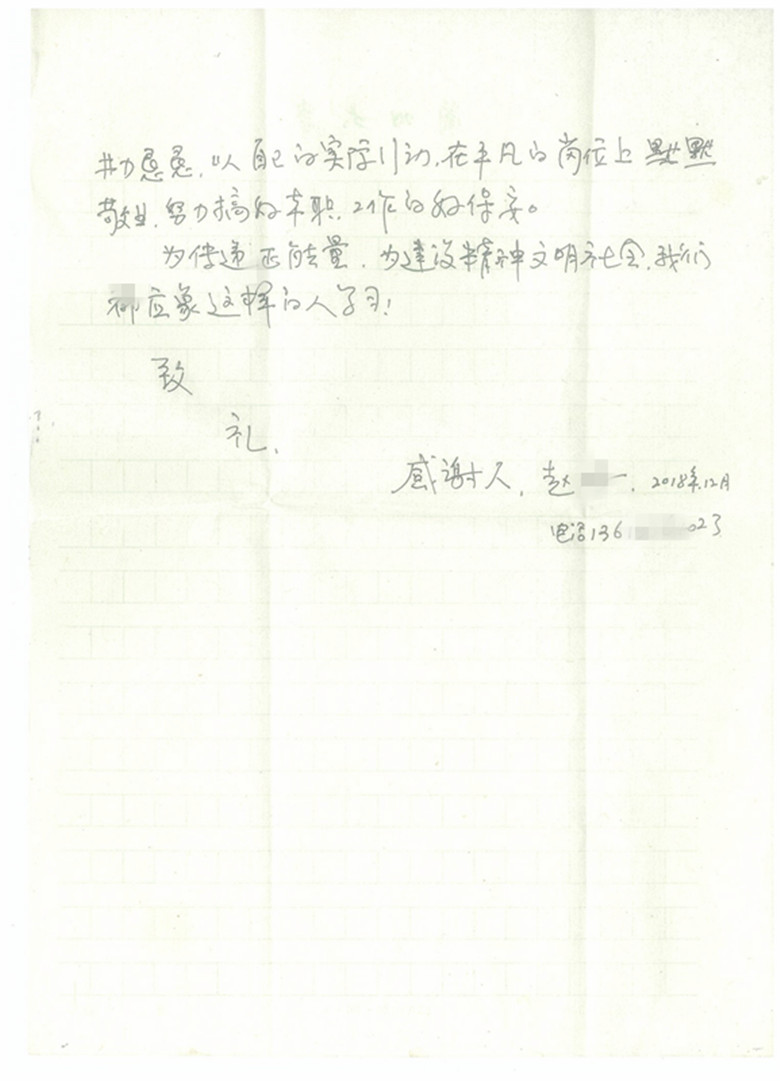 恳恳,以自己的实际行动,在平凡的岗位上默默
敬业,努力搞好本职工作的好保安。
为传递正能量,为建设精神文明社会,我们
都应象这样的人学习!
致
礼,
感谢人,赵 一,2018年12月
电话136 023